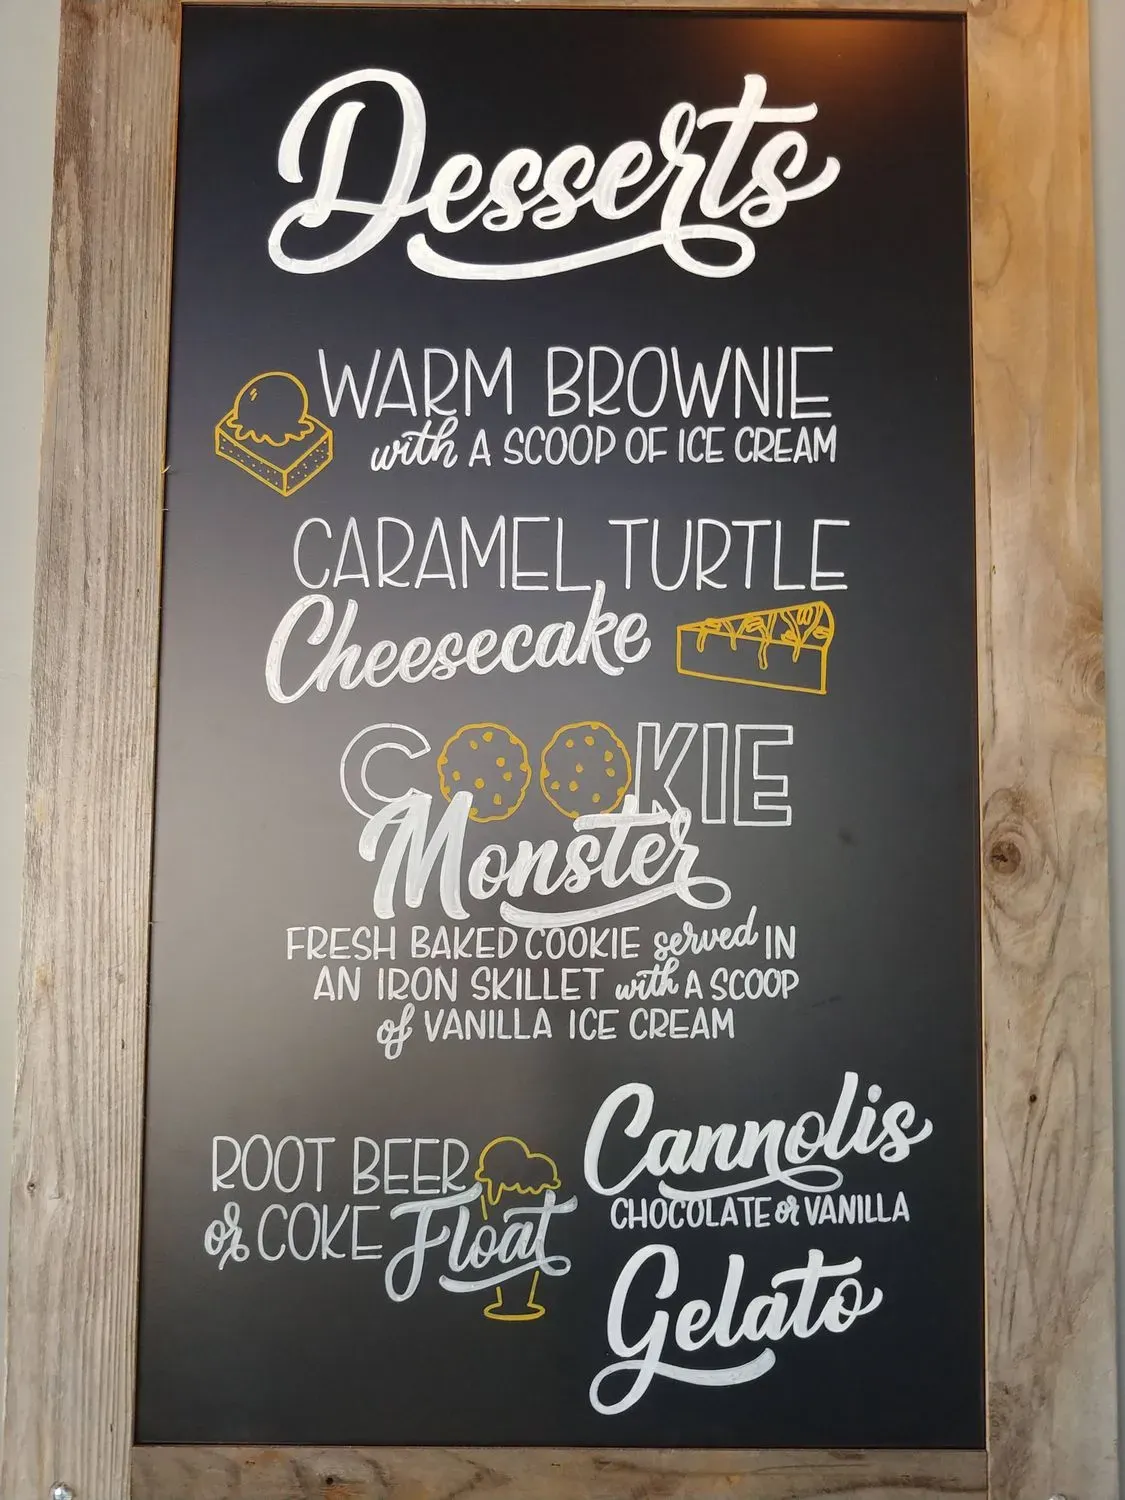 Desserts
WARM BROWNIE
with A SCOOP OF ICE CREAM
CARAMEL TURTLE
Cheesecake
COOKIE
Monster
FRESH BAKED COOKIE served IN
AN IRON SKILLET with A SCOOP
of VANILLA ICE CREAM
ROOT BEER
or COKE Float
Cannolis
CHOCOLATE or VANILLA
Gelato